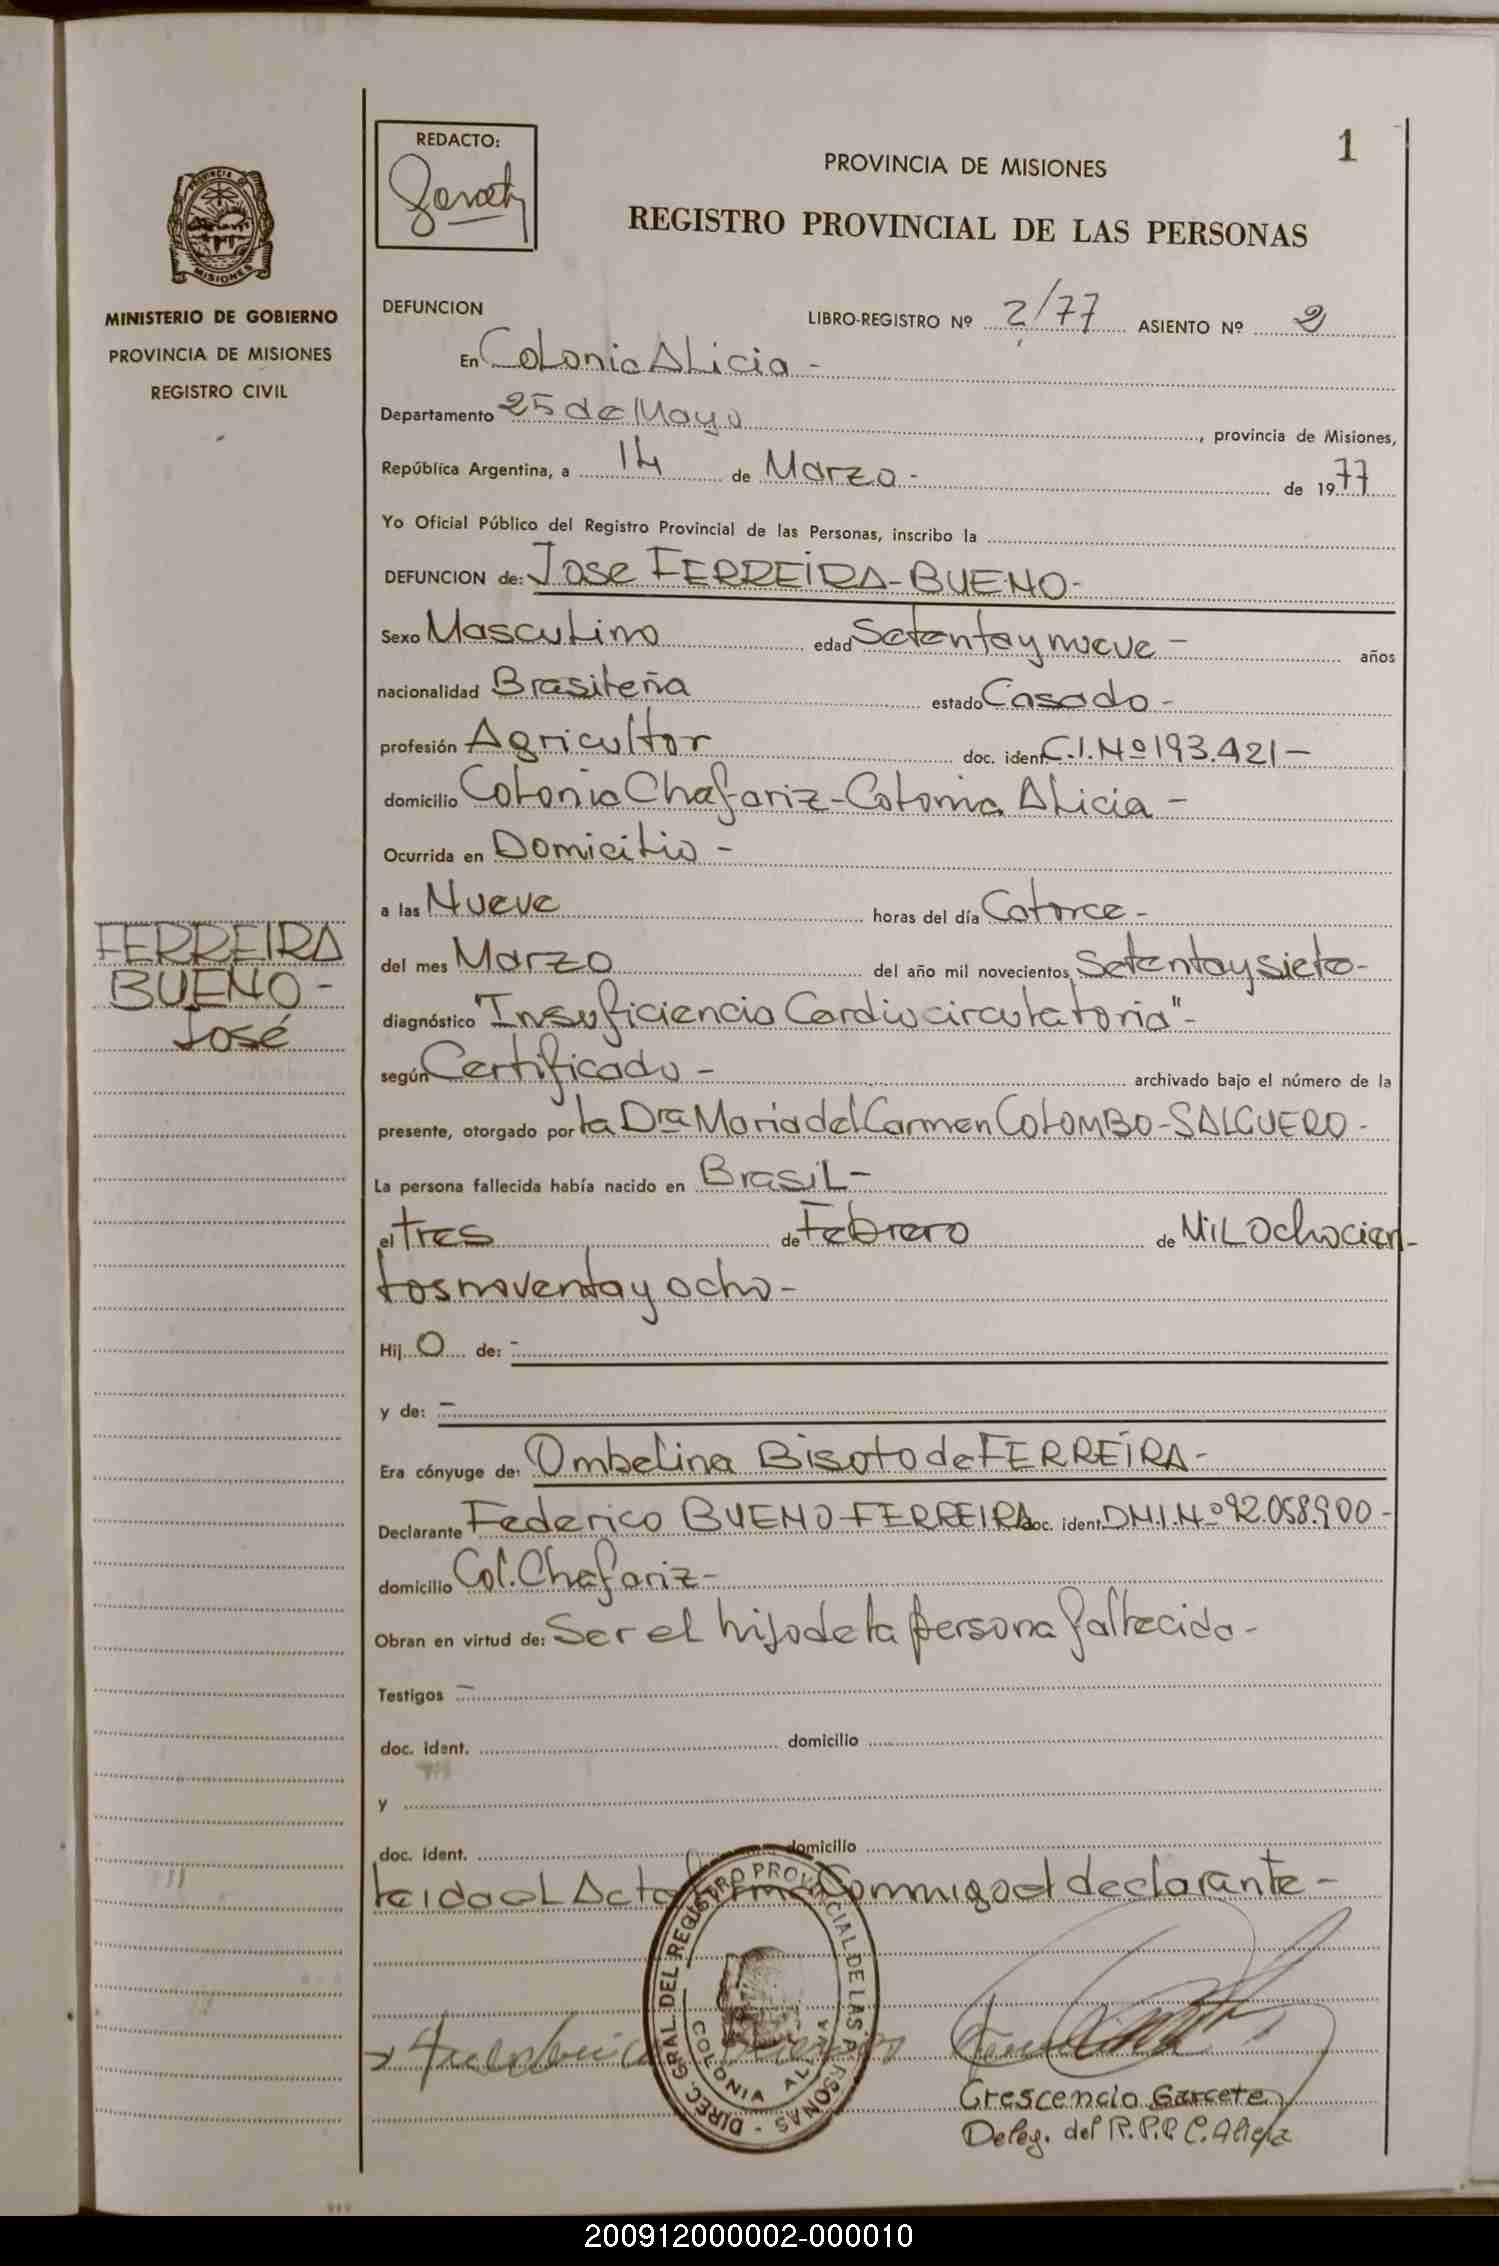 REDACTO:
1
PROVINCIA DE MISIONES
REGISTRO PROVINCIAL DE LAS PERSONAS
PROVINCIA DE
MISIONES
MINISTERIO DE GOBIERNO
PROVINCIA DE MISIONES
REGISTRO CIVIL
DEFUNCION
LIBRO-REGISTRO Nº 2/77 ASIENTO Nº 2
En Colonia Alicia -
Departamento 25 de Mayo, provincia de Misiones,
República Argentina, a 14 de Marzo - de 1977
Yo Oficial Público del Registro Provincial de las Personas, inscribo la
DEFUNCION de: Jose FERREIRA-BUENO-
Sexo Masculino edad Setenta y nueve - años
nacionalidad Brasileña estado Casado -
profesión Agricultor doc. ident. C.I. Nº 193.421 -
domicilio Colonia Chafariz - Colonia Alicia -
Ocurrida en Domicilio -
a las Nueve horas del día Catorce -
del mes Marzo del año mil novecientos Setenta y siete -
FERREIRA
BUENO -
José
diagnóstico "Insuficiencia Cardiocirculatoria" -
según Certificado - archivado bajo el número de la
presente, otorgado por la Dra Maria del Carmen COLOMBO-SALGUERO -
La persona fallecida había nacido en Brasil -
el tres de Febrero de Mil Ochocien-
tos noventa y ocho -
Hij o de: -
y de: -
Era cónyuge de: Ombelina Bisoto de FERREIRA -
Declarante Federico BUENO-FERREIRA doc. ident. D.N.I. Nº 92.058.900 -
domicilio Col. Chafariz -
Obran en virtud de: Ser el hijo de la persona fallecida -
Testigos -
doc. ident. domicilio
y
doc. ident. domicilio
Leida el Acta firma Conmigo el declarante -
DIREC. GRAL. DEL REGISTRO PROVINCIAL DE LAS PERSONAS -
COLONIA ALICIA
Crescencio Garcete
Deleg. del R.P.P. C. Alicia
200912000002-000010